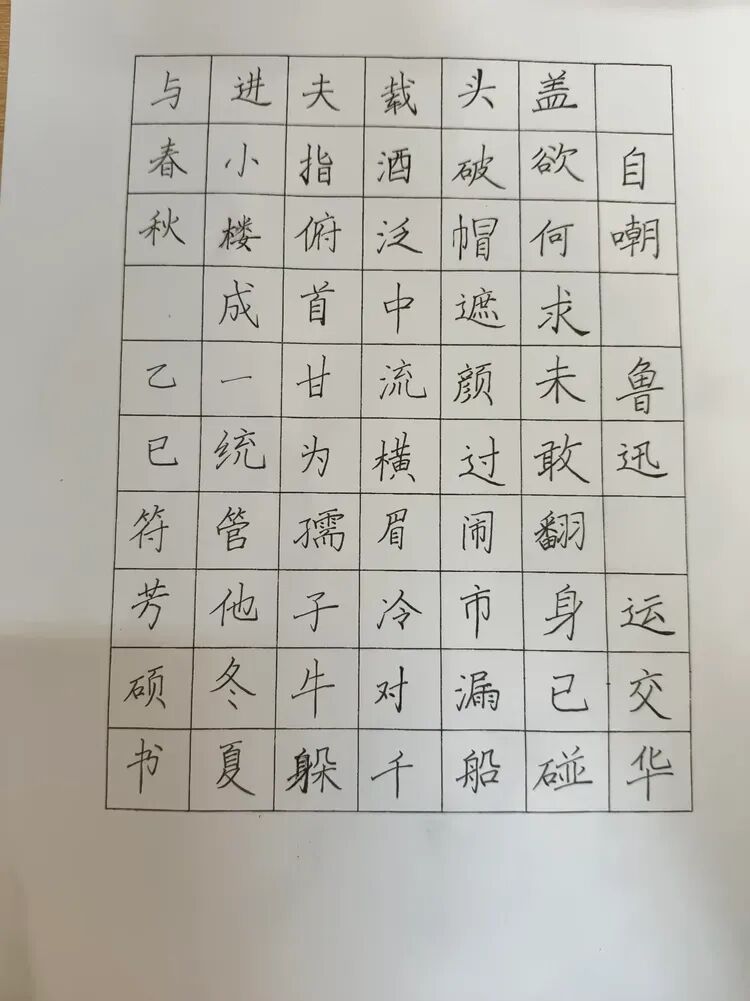 自嘲 鲁迅 运交华
盖欲何求未敢翻身已碰
头破帽遮颜过闹市漏船
载酒泛中流横眉冷对千
夫指俯首甘为孺子牛躲
进小楼成一统管他冬夏
与春秋 乙巳符芳硕书